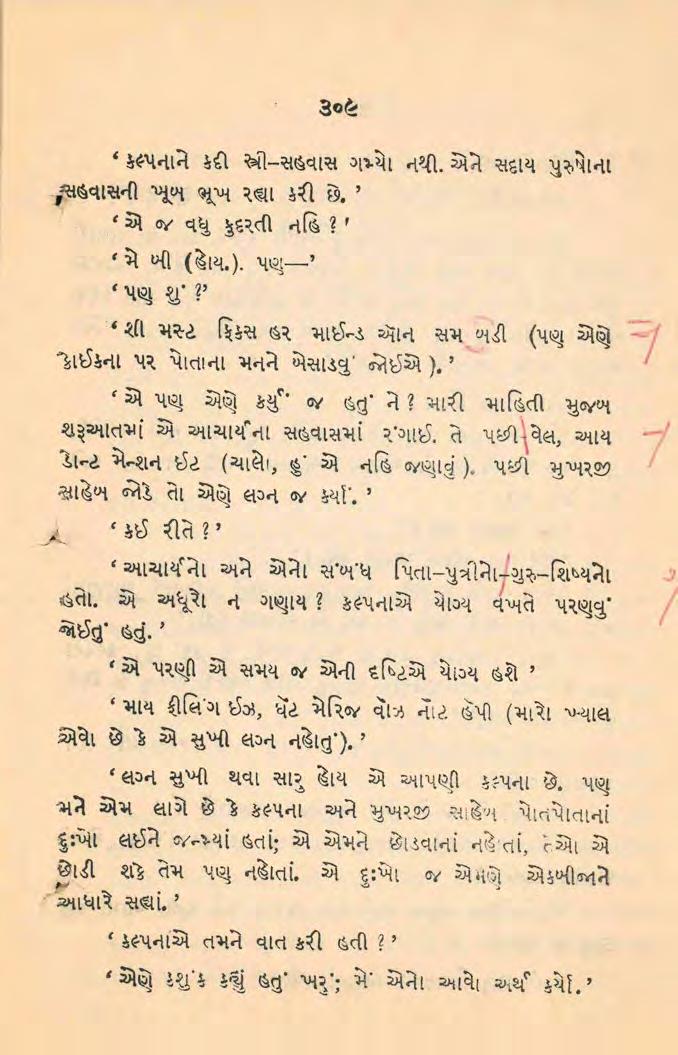 ૩૦૯
‘ કલ્પનાને કદી સ્ત્રી–સહવાસ ગમ્યો નથી. એને સદાય પુરુષોના
સહવાસની ખૂબ ભૂખ રહ્યા કરી છે. ’
‘ એ જ વધુ કુદરતી નહિ ? '
‘ મે બી (હોય.). પણ—’
‘ પણ શું ?’
‘ શી મસ્ટ ફિક્સ હર માઈન્ડ ઑન સમ બડી (પણ એણે
કોઈકના પર પોતાના મનને બેસાડવું જોઈએ ). ’
‘ એ પણ એણે કર્યું જ હતું ને ? મારી માહિતી મુજબ
શરૂઆતમાં એ આચાર્યના સહવાસમાં રંગાઈ. તે પછી-વેલ, આય
ડોન્ટ મેન્શન ઈટ (ચાલો, હું એ નહિ જણાવું ). પછી મુખરજી
સાહેબ જોડે તો એણે લગ્ન જ કર્યાં. ’
‘ કઈ રીતે ? ’
‘ આચાર્યનો અને એનો સંબંધ પિતા–પુત્રીનો–ગુરુ–શિષ્યનો
હતો. એ અધૂરો ન ગણાય ? કલ્પનાએ યોગ્ય વખતે પરણવું
જોઈતું હતું. ’
‘ એ પરણી એ સમય જ એની દૃષ્ટિએ યોગ્ય હશે ’
‘ માય ફીલિંગ ઈઝ, ધૅટ મેરિજ વૉઝ નૉટ હૅપી (મારો ખ્યાલ
એવો છે કે એ સુખી લગ્ન નહોતું ). ’
‘ લગ્ન સુખી થવા સારુ હોય એ આપણી કલ્પના છે. પણ
મને એમ લાગે છે કે કલ્પના અને મુખરજી સાહેબ પોતપોતાનાં
દુઃખો લઈને જન્મ્યાં હતાં; એ એમને છોડવાનાં નહોતાં, તેઓ એ
છોડી શકે તેમ પણ નહોતાં. એ દુઃખો જ એમણે એકબીજાને
આધારે સહ્યાં. ’
‘ કલ્પનાએ તમને વાત કરી હતી ? ’
‘ એણે કશુંક કહ્યું હતું ખરું; મેં એનો આવો અર્થ કર્યો. ’